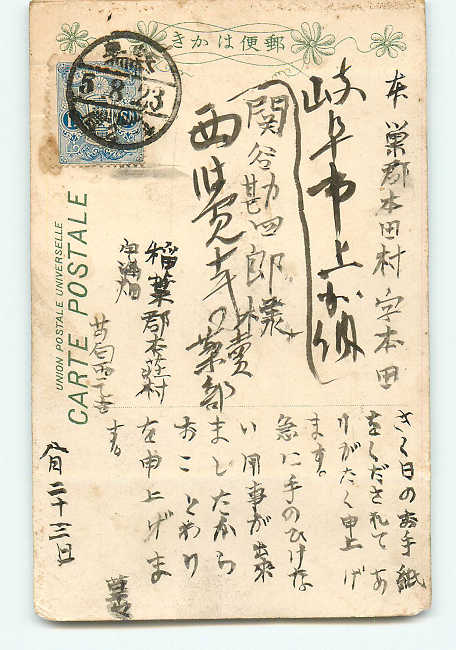 郵便はかき
UNION POSTALE UNIVERSELLE
CARTE POSTALE
5.8.23
本巣郡本田村字本田
岐阜市上
関谷勘四郎様
西覚寺
稲葉郡本荘村
さく日のお手紙
をくだされてあ
りがたく申上げ
ます。
急に手のひけな
い用事が出来
ましたから
おことわり
を申上げま
する。
八月二十三日
草々